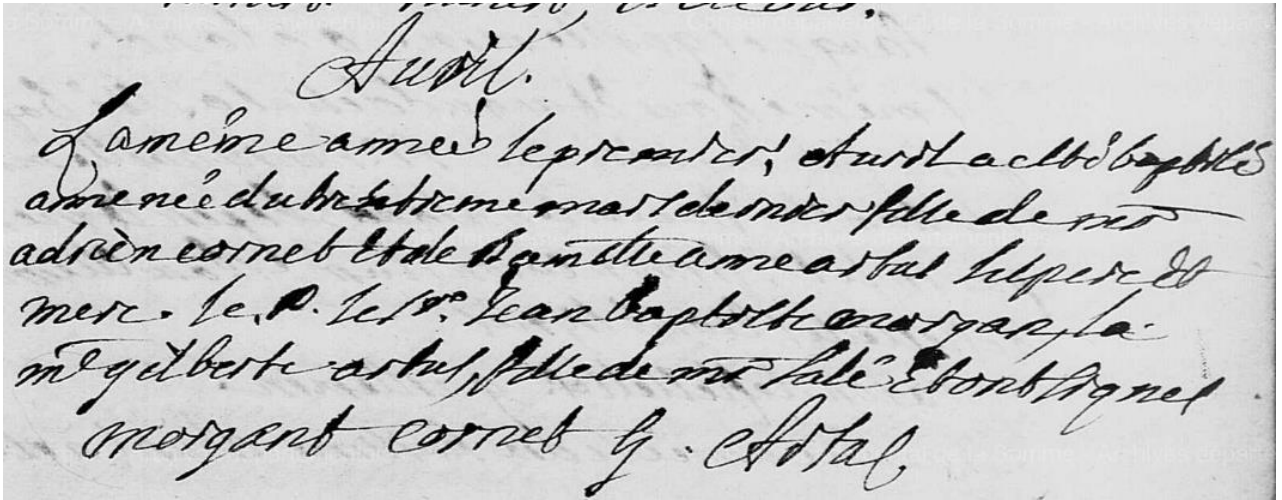 Avril.
La méme année le premier, Avril a esté baptisée
amenée du trentieme mars dernier fille de mr
adrien cornet Et de damlle anne artus ses pere Et
mere. le P. le sr. Jean baptiste morgan, la
me gilberte artus, fille de mr Et ont signes
morgant cornet g. Artus